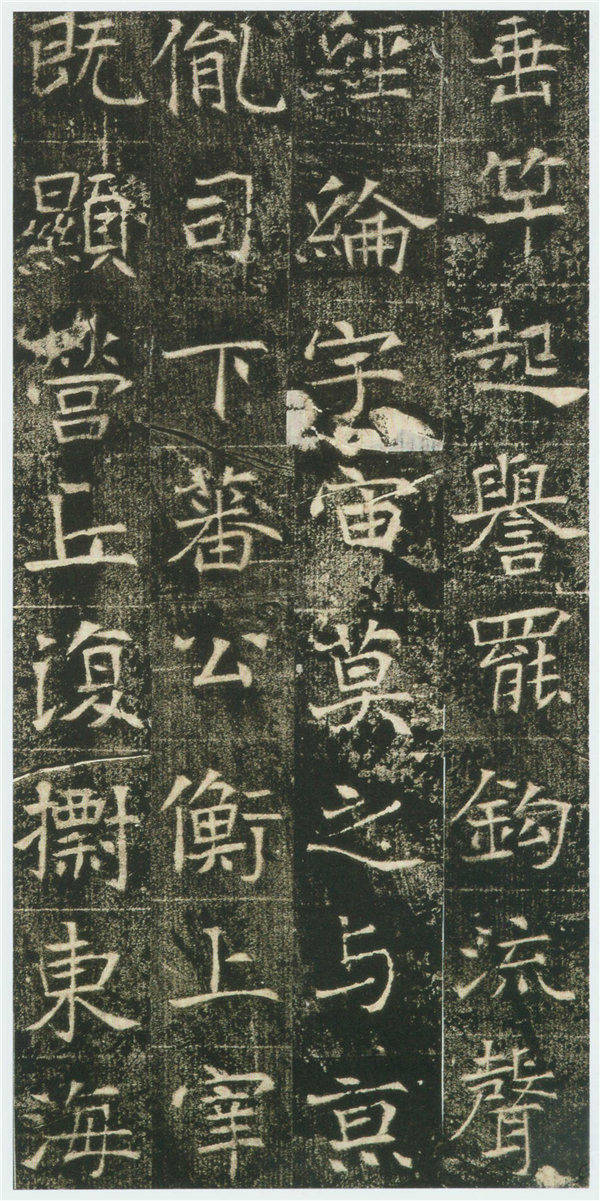 垂竿起譽罷鈎流聲
經綸宇宙莫之与京
胤司下蕃公衡上宰
既顯營丘復擀東海